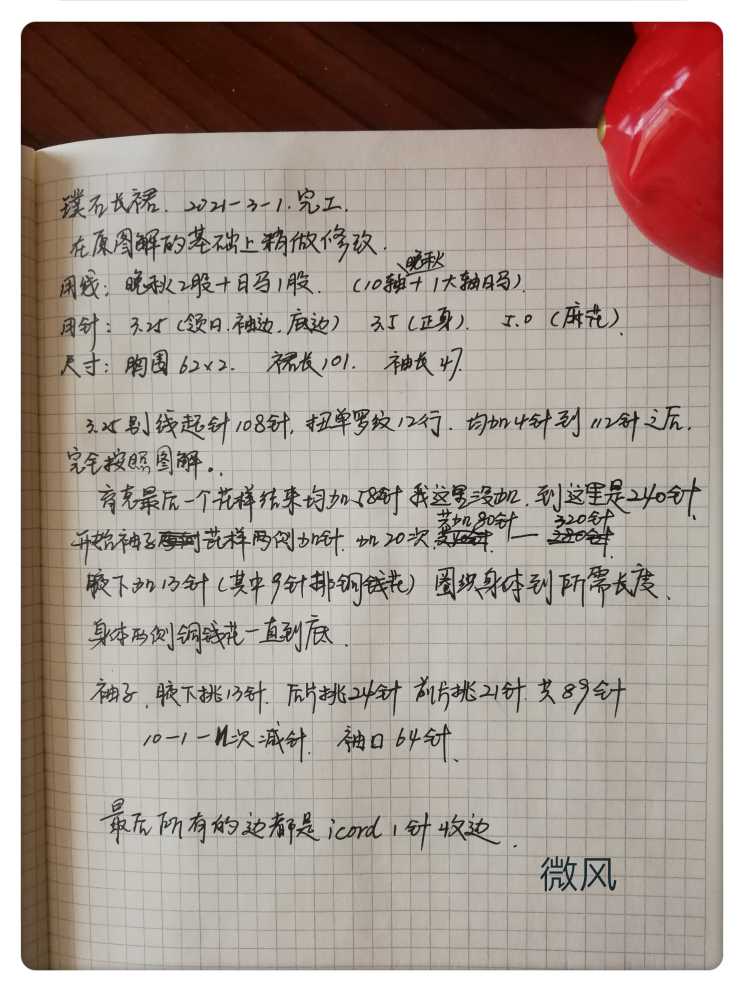 璞石长裙. 2021-3-1.完工.
在原图解的基础上稍做修改.
用线: 晚秋2股+日马1股. (10轴晚秋+1大轴日马)
用针: 3.25 (领口.袖边.底边) 3.5 (正身). 5.0 (麻花)
尺寸: 胸围 62×2. 裙长101. 袖长 47.
3.25别线起针108针, 扭单罗纹12行. 均加4针到112针之后.
完全按照图解。.
育克最后一个花样结束均加58针 我这里没加. 到这里是240针.
开始袖子花样两侧加针. 加20次. 共加80针 — 320针
腋下加13针 (其中9针排铜钱花) 圈织身体到所需长度.
身体两侧铜钱花一直到底.
袖子. 腋下挑13针. 后片挑24针 前片挑21针. 共89针
10-1- 次减针. 袖口64针.
最后所有的边都是icord 1针收边.
微风